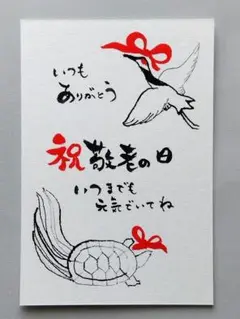 いつも
ありがとう
祝敬老の日
いつまでも
元気でいてね